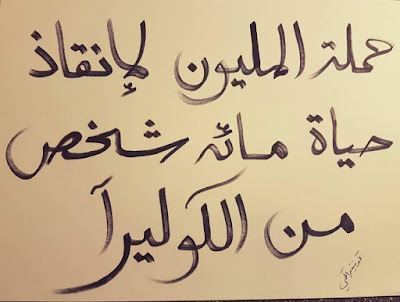 حملة المليون لإنقاذ
حياة مائه شخص
من الكوليرآ